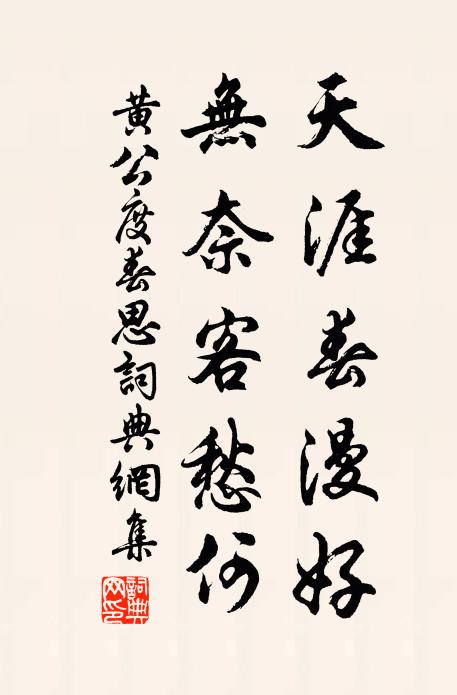 天涯春漫好
無奈客愁何
黄公度春思詞典網集
詞典網印